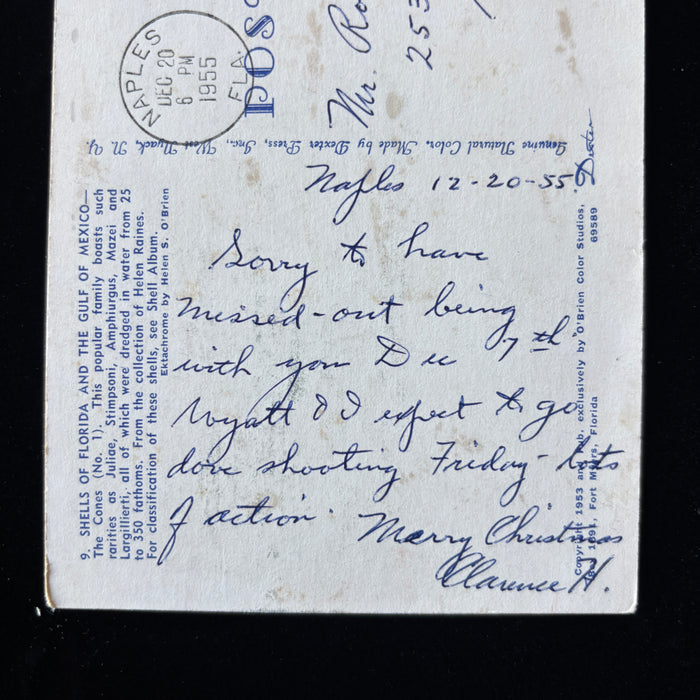 NAPLES
DEC 20
6 PM
1955
FLA.
POS
Mr. Ro
253
Genuine Natural Color. Made by Dexter Press, Inc., West Nyack, N. Y.
Dexter
9. SHELLS OF FLORIDA AND THE GULF OF MEXICO—
The Cones (No. 1). This popular family boasts such
rarities as Juliae, Stimpsoni, Amphiurgus, Mazei and
Largillierti, all of which were dredged in water from 25
to 350 fathoms. From the collection of Helen Raines.
For classification of these shells, see Shell Album.
Ektachrome by Helen S. O'Brien
Naples 12-20-55.
Sorry to have
missed-out being
with you Dec 7th
Wyatt & I expect to go
dove shooting Friday - lots
of action. Merry Christmas
Clarence H.
Copyright 1953 and Pub. exclusively by O'Brien Color Studios,
1091, Fort Myers, Florida
69589